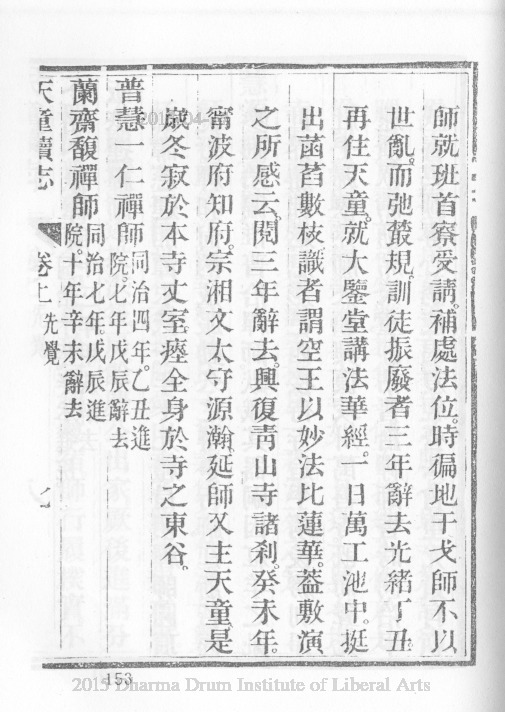 師就班首寮受請。補處法位。時徧地干戈師不以
世亂。而弛叢規。訓徒振廢者三年辭去光緒丁丑。
再住天童。就大鑒堂講法華經。一日萬工池中。挺
出菡萏數枝。識者謂空王以妙法比蓮華。葢敷演
之所感云。閱三年辭去。興復靑山寺諸刹。癸未年。
甯波府知府。宗湘文太守源瀚。延師又主天童。是
歲冬寂於本寺丈室。瘞全身於寺之東谷。
普慧一仁禪師 同治四年。乙丑進
院。七年戊辰辭去
蘭齋馥禪師 同治七年。戊辰進
院。十年辛未辭去
天童續志 卷上 先覺
153
2015 Dharma Drum Institute of Liberal Arts